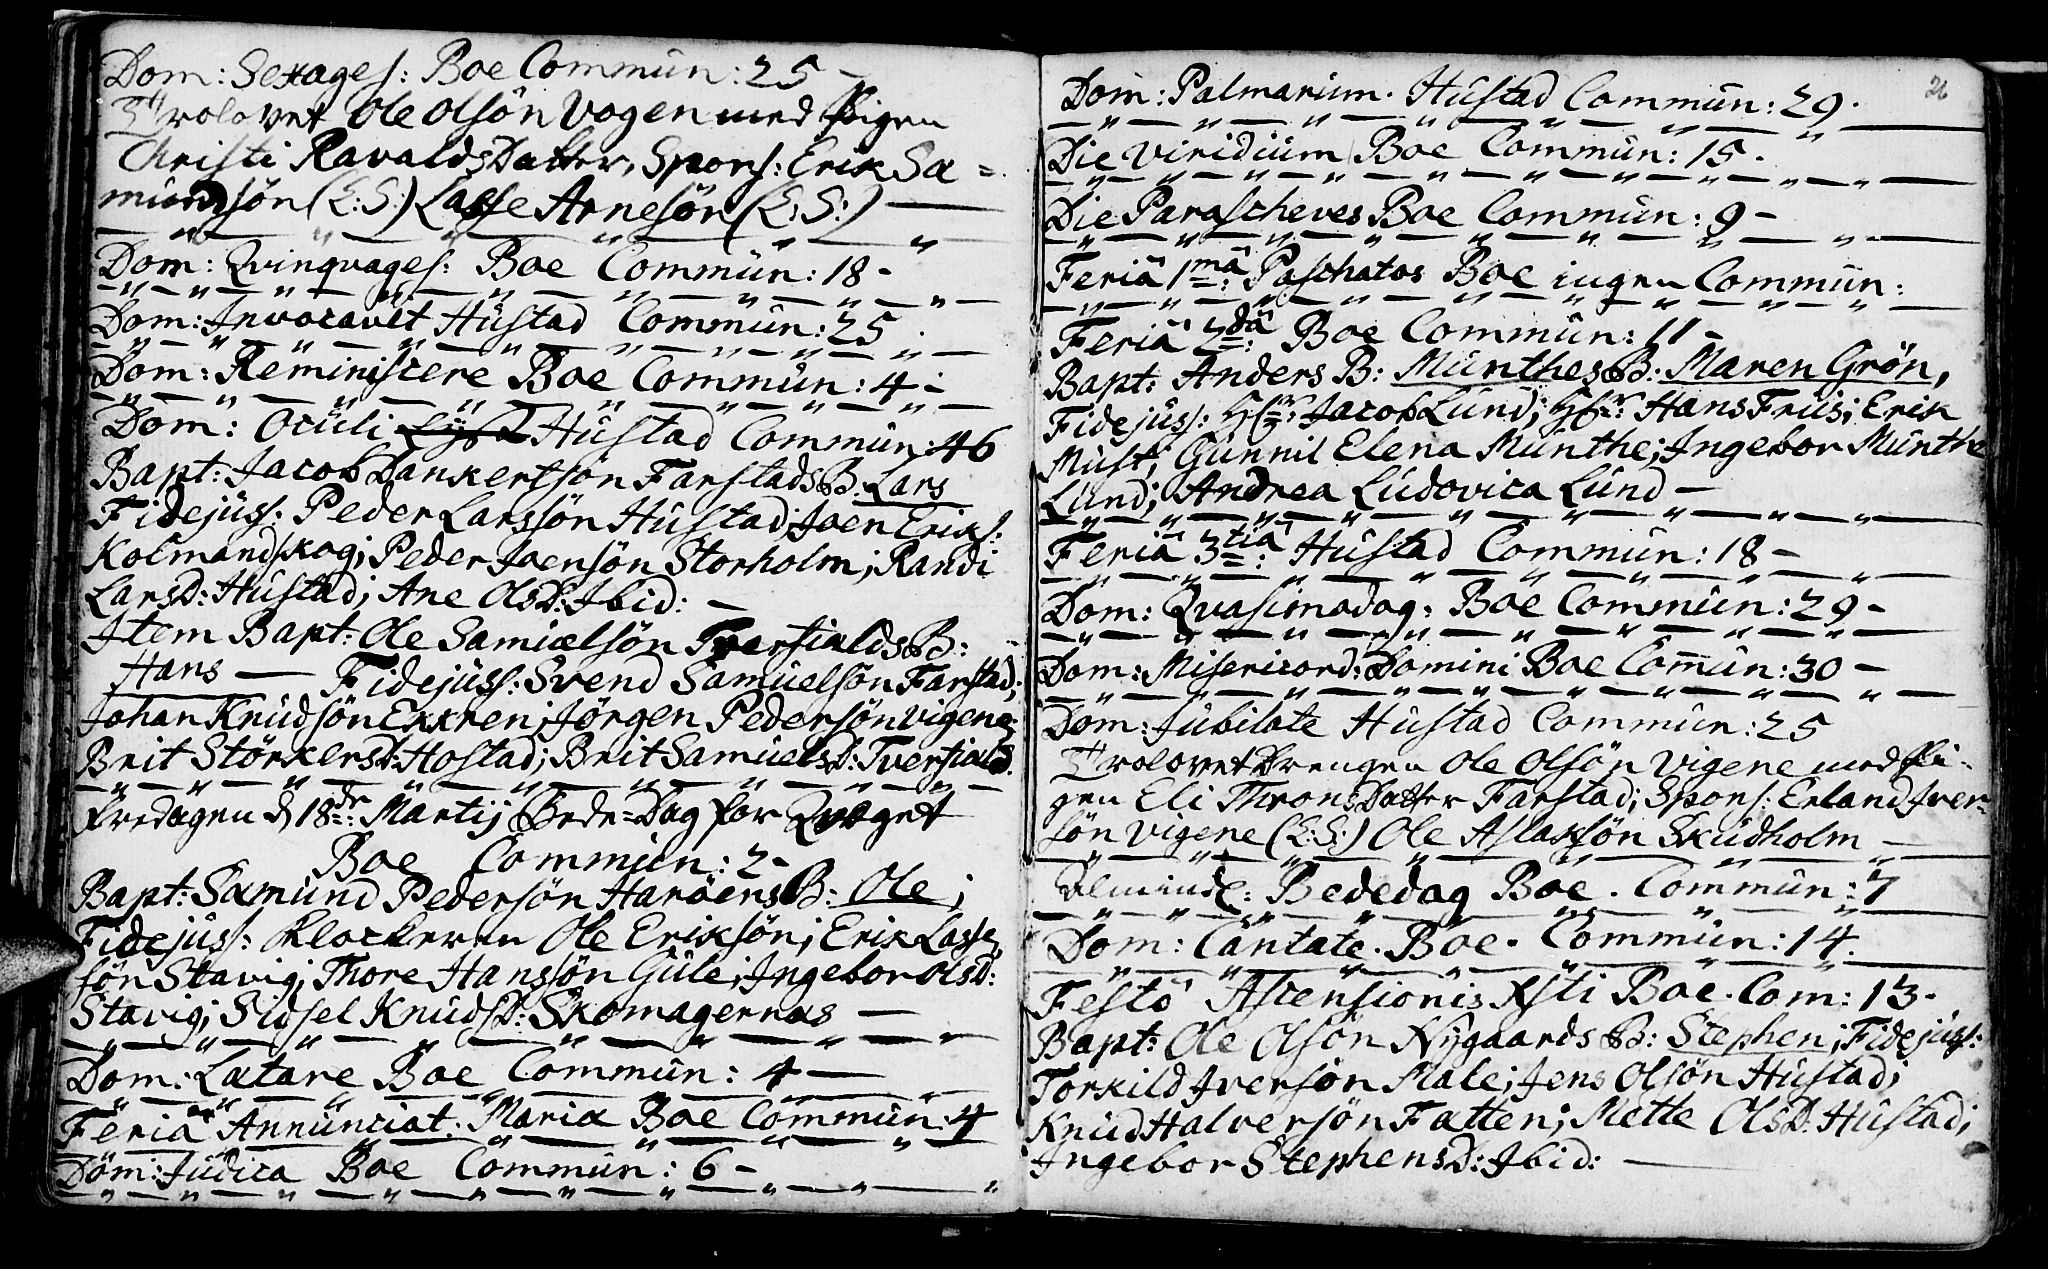 Dom: Sexages: Boe Commun: 25 -
Trolovet Ole Olsön Vogen med Pigen
Christi RavaldsDatter, Spons: Erik Sæ=
mundsön (L:S:) Lasse Arnesön (L:S:)
Dom: Qvinqvages: Boe Commun: 18 -
Dom: Invocavit Hustad Commun: 25.
Dom: Reminiscere Boe Commun: 4 -
Dom: Oculi Hustad Commun: 46
Bapt: Jacob Dankertsön Farstads B. Lars
Fidejuss: Peder Larssön Hustad; Joen Eriks:
Kolmandskog; Peder Joensön Storholm; Randi
LarsD: Hustad; Ane OlsD: Ibid: -
Item Bapt: Ole Samuelsön Tverfialds B:
Hans — Fidejuss: Svend Samuelsön Farstad;
Johan Knudsön Ekkren; Jörgen Pedersön Vigene;
Brit StörkersD: Hostad; Brit SamuelsD: Tverfiald.
Fredagen d 18de: Martij Bede=Dag for Qvæget
Boe Commun: 2 -
Bapt: Sæmund Pedersön Haröens B: Ole;
Fidejuss: Klockeren Ole Eriksön; Erik Lasse
sön Stavig; Thore Hanssön Gule; Ingebor OlsD:
Stavig; Sidsel KnudsD: Skomagernæs —
Dom: Lætare Boe Commun: 4 —
Feria Annunciat: Mariæ Boe Commun: 4
Dom: Judica Boe Commun: 6 -
26
Dom: Palmarum. Hustad Commun: 29.
Die Viridium Boe Commun: 15.
Die Parascheves Boe Commun: 9 -
Feriâ 1mâ: Paschatos Boe ingen Commun:
Feriâ 2dâ: Boe Commun: 11 -
Bapt: Anders B: Munthes B: Maren Grön,
Fidejuss: Hr: Jacob Lund; Hr: Hans Friis; Erik
Must; Gunnil Elena Munthe; Ingebor Munthe
Lund; Andrea Ludovica Lund —
Feriâ 3tiâ: Hustad Commun: 18 -
Dom: Qvasimodog: Boe Commun: 29 -
Dom: Misericord: Domini Boe Comun: 30 -
Dom: Jubilate Hustad Commun: 25
Trolovet Drengen Ole Olsön Vigene med Pi-
gen Eli ThronsDatter Farstad; Spons: Erland Iver-
sön Vigene (L:S:) Ole Aslaksön Skudholm —
Almindel: Bededag Boe. Commun: 7
Dom: Cantate. Boe. Commun: 14.
Festô Ascensionis Xsti Boe. Com: 13.
Bapt: Ole Olsön Nygaards B: Stephen; Fidejuss:
Torkild Iversön Male; Jens Olsön Hustad;
Knud Halversön Fatten; Mette OlsD: Hustad;
Ingebor StephensD: Ibid: —